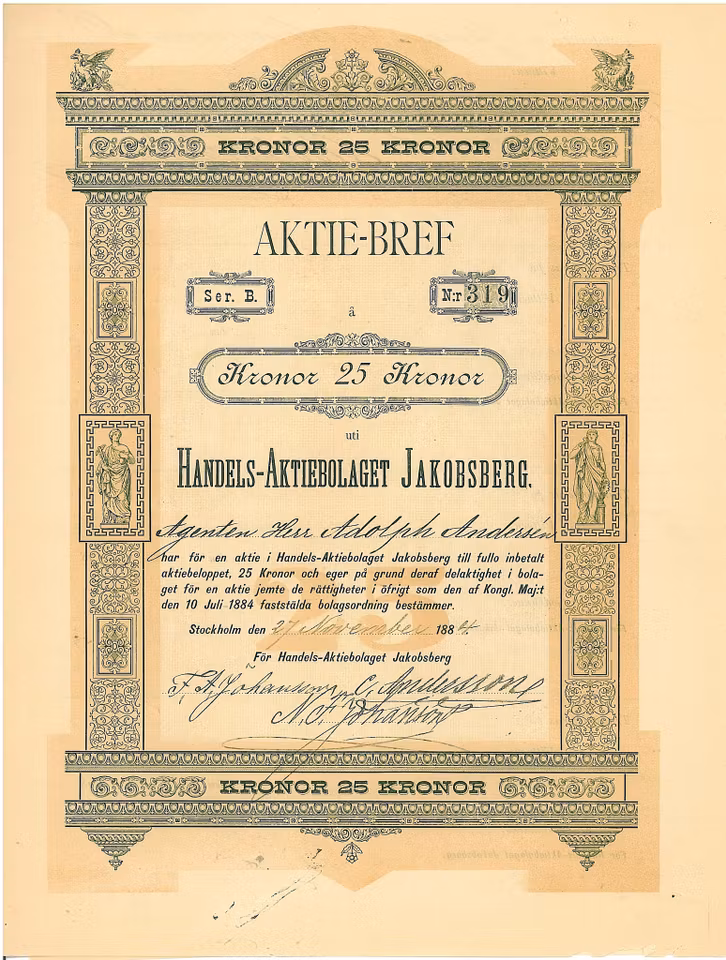 KRONOR 25 KRONOR
AKTIE-BREF
Ser. B.
N:r 319
å
Kronor 25 Kronor
uti
HANDELS-AKTIEBOLAGET JAKOBSBERG.
Agenten Herr Adolph Andersén
har för en aktie i Handels-Aktiebolaget Jakobsberg till fullo inbetalt
aktiebeloppet, 25 Kronor och eger på grund deraf delaktighet i bola-
get för en aktie jemte de rättigheter i öfrigt som den af Kongl. Maj:t
den 10 Juli 1884 faststälda bolagsordning bestämmer.
Stockholm den 27 November 1884.
För Handels-Aktiebolaget Jakobsberg
F. A. Johansson C. Andersson
A. F. Johanson
KRONOR 25 KRONOR